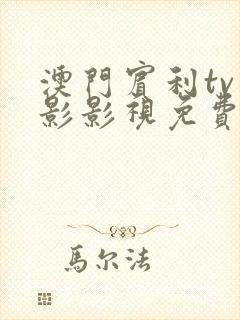 澳門賓利tv
影影視免費
馬尔法